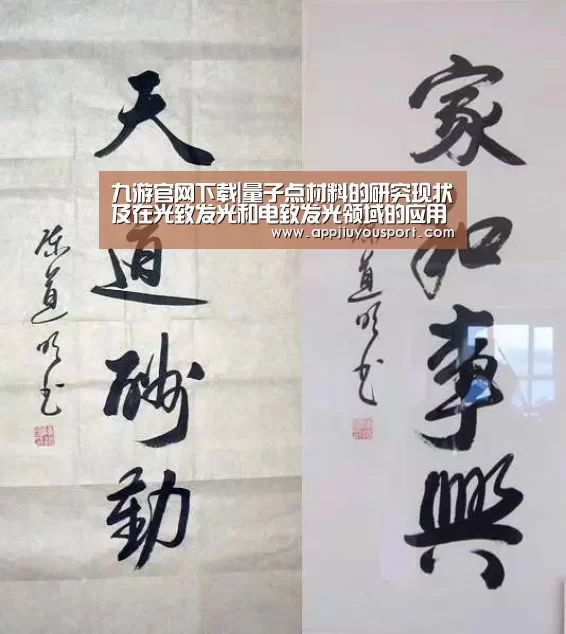 天道酬勤
陈道明书
家和事興
陈道明书
九游官网下载|量子点材料的研究现状
及在光致发光和电致发光领域的应用
www.appjiuyousport.com